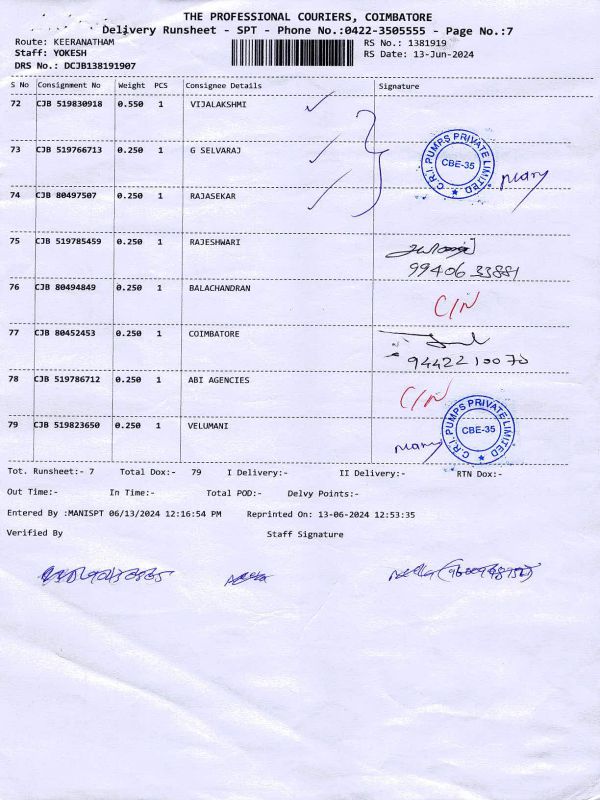 THE PROFESSIONAL COURIERS, COIMBATORE
Delivery Runsheet - SPT - Phone No.:0422-3505555 - Page No.:7
Route: KEERANATHAM RS No.: 1381919
Staff: YOKESH RS Date: 13-Jun-2024
DRS No.: DCJB138191907
S No Consignment No Weight PCS Consignee Details Signature
72 CJB 519830918 0.550 1 VIJALAKSHMI
73 CJB 519766713 0.250 1 G SELVARAJ
C.R.I. PUMPS PRIVATE LIMITED CBE-35
74 CJB 80497507 0.250 1 RAJASEKAR
75 CJB 519785459 0.250 1 RAJESHWARI
99406 33881
76 CJB 80494849 0.250 1 BALACHANDRAN C/N
77 CJB 80452453 0.250 1 COIMBATORE
94422 10070
78 CJB 519786712 0.250 1 ABI AGENCIES C/N
79 CJB 519823650 0.250 1 VELUMANI
C.R.I. PUMPS PRIVATE LIMITED CBE-35
Tot. Runsheet:- 7 Total Dox:- 79 I Delivery:- II Delivery:- RTN Dox:-
Out Time:- In Time:- Total POD:- Delvy Points:-
Entered By :MANISPT 06/13/2024 12:16:54 PM Reprinted On: 13-06-2024 12:53:35
Verified By Staff Signature